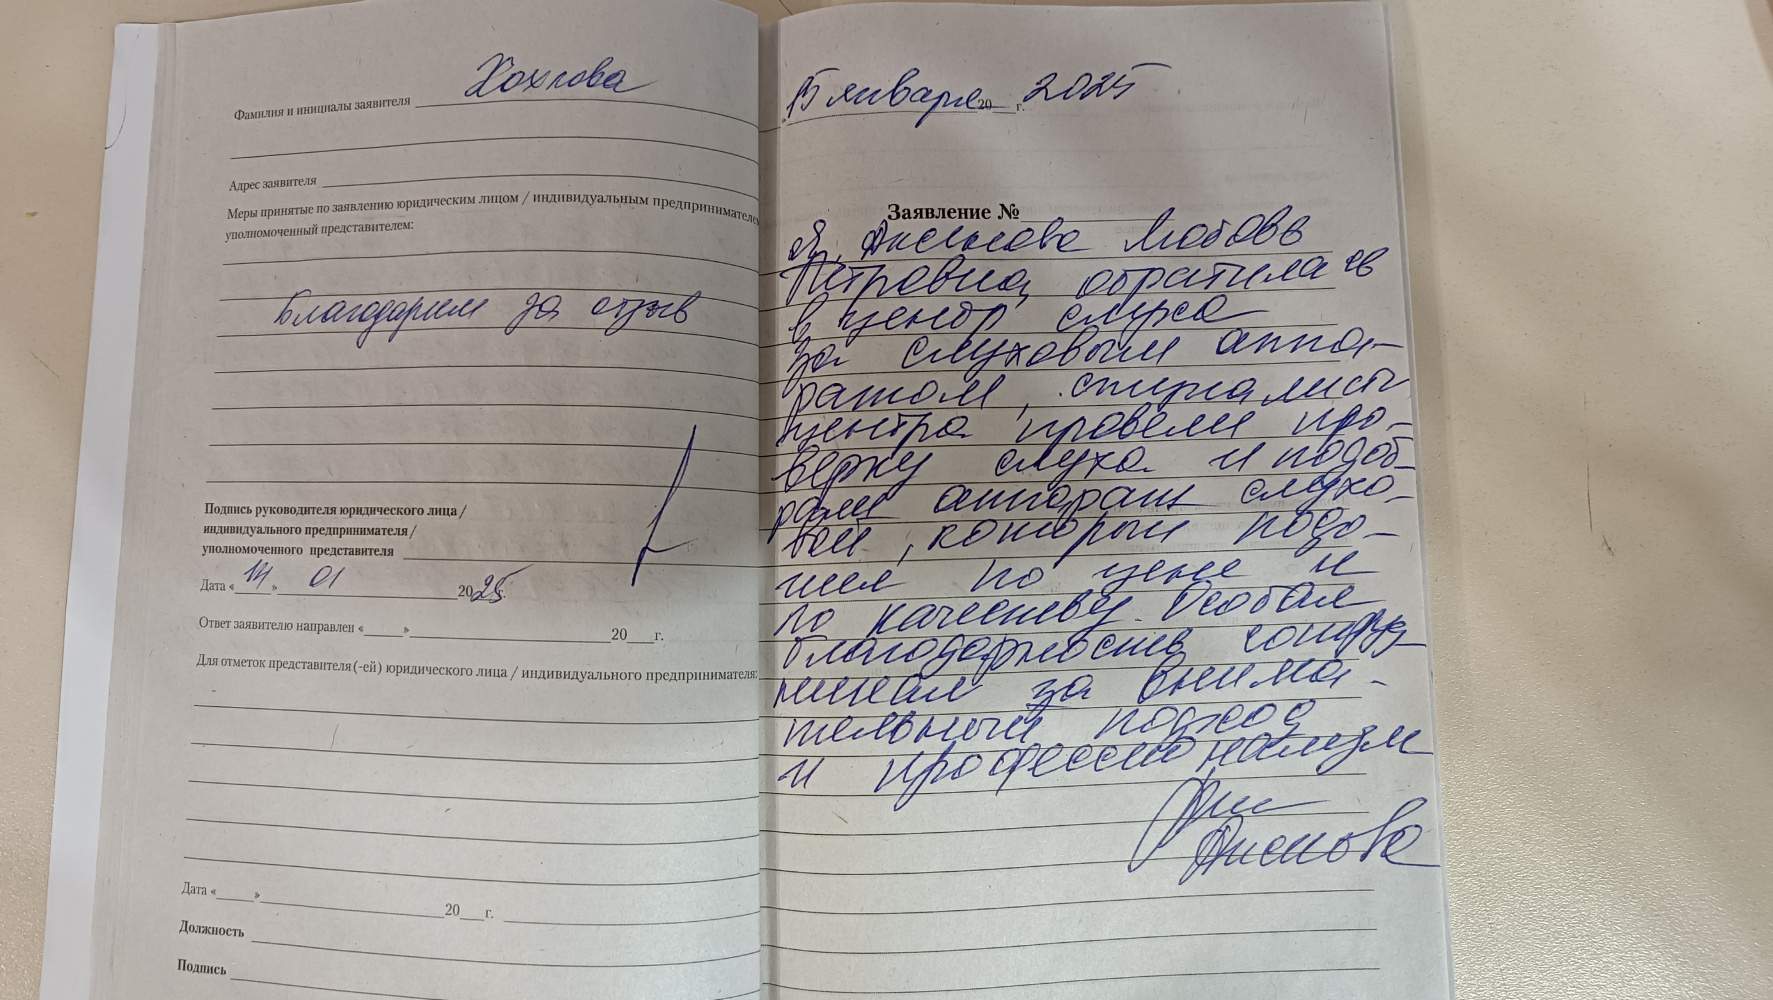 Хохлова
Фамилия и инициалы заявителя
Адрес заявителя
Меры принятые по заявлению юридическим лицом / индивидуальным предпринимателем
уполномоченный представителем:
Благодарим за отзыв
Подпись руководителя юридического лица /
индивидуального предпринимателя /
уполномоченного представителя
Дата « 14 » 01 2025г.
Ответ заявителю направлен «____»____20___г.
Для отметок представителя (-ей) юридического лица / индивидуального предпринимателя:
Дата «____»____20___г.
Должность
Подпись
15 января 20___г. 2025
Заявление №
Я, Любовь
Петровна, обратилась
в центр слуха
за слуховым аппа-
ратом, специалисты
центра провели про-
верку слуха и подоб-
рали аппарат слухо-
вой, который подо-
шел по цене и
по качеству. Особая
благодарность сотруд-
никам за внима-
тельный подход
и профессионализм